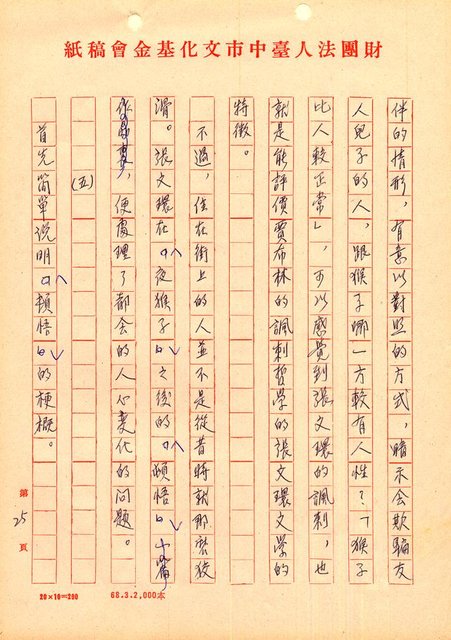 財團法人臺中市文化基金會稿紙
伴的情形，有意以對照的方式，暗示会欺騙友
人兒子的人，跟猴子哪一方較有人性？「猴子
比人較正常」，可以感覺到張文環的諷刺，也
就是能評價賈布林的諷刺哲學的張文環文學的
特徵。
不過，住在街上的人並不是從昔時就那麼狡
滑。張文環在『夜猴子』之後的『頓悟』小
，便處理了都会的人心变化的問題。
(五)
首先简單说明『頓悟』的梗概。
第25頁
20×10=200
68.3.2,000本